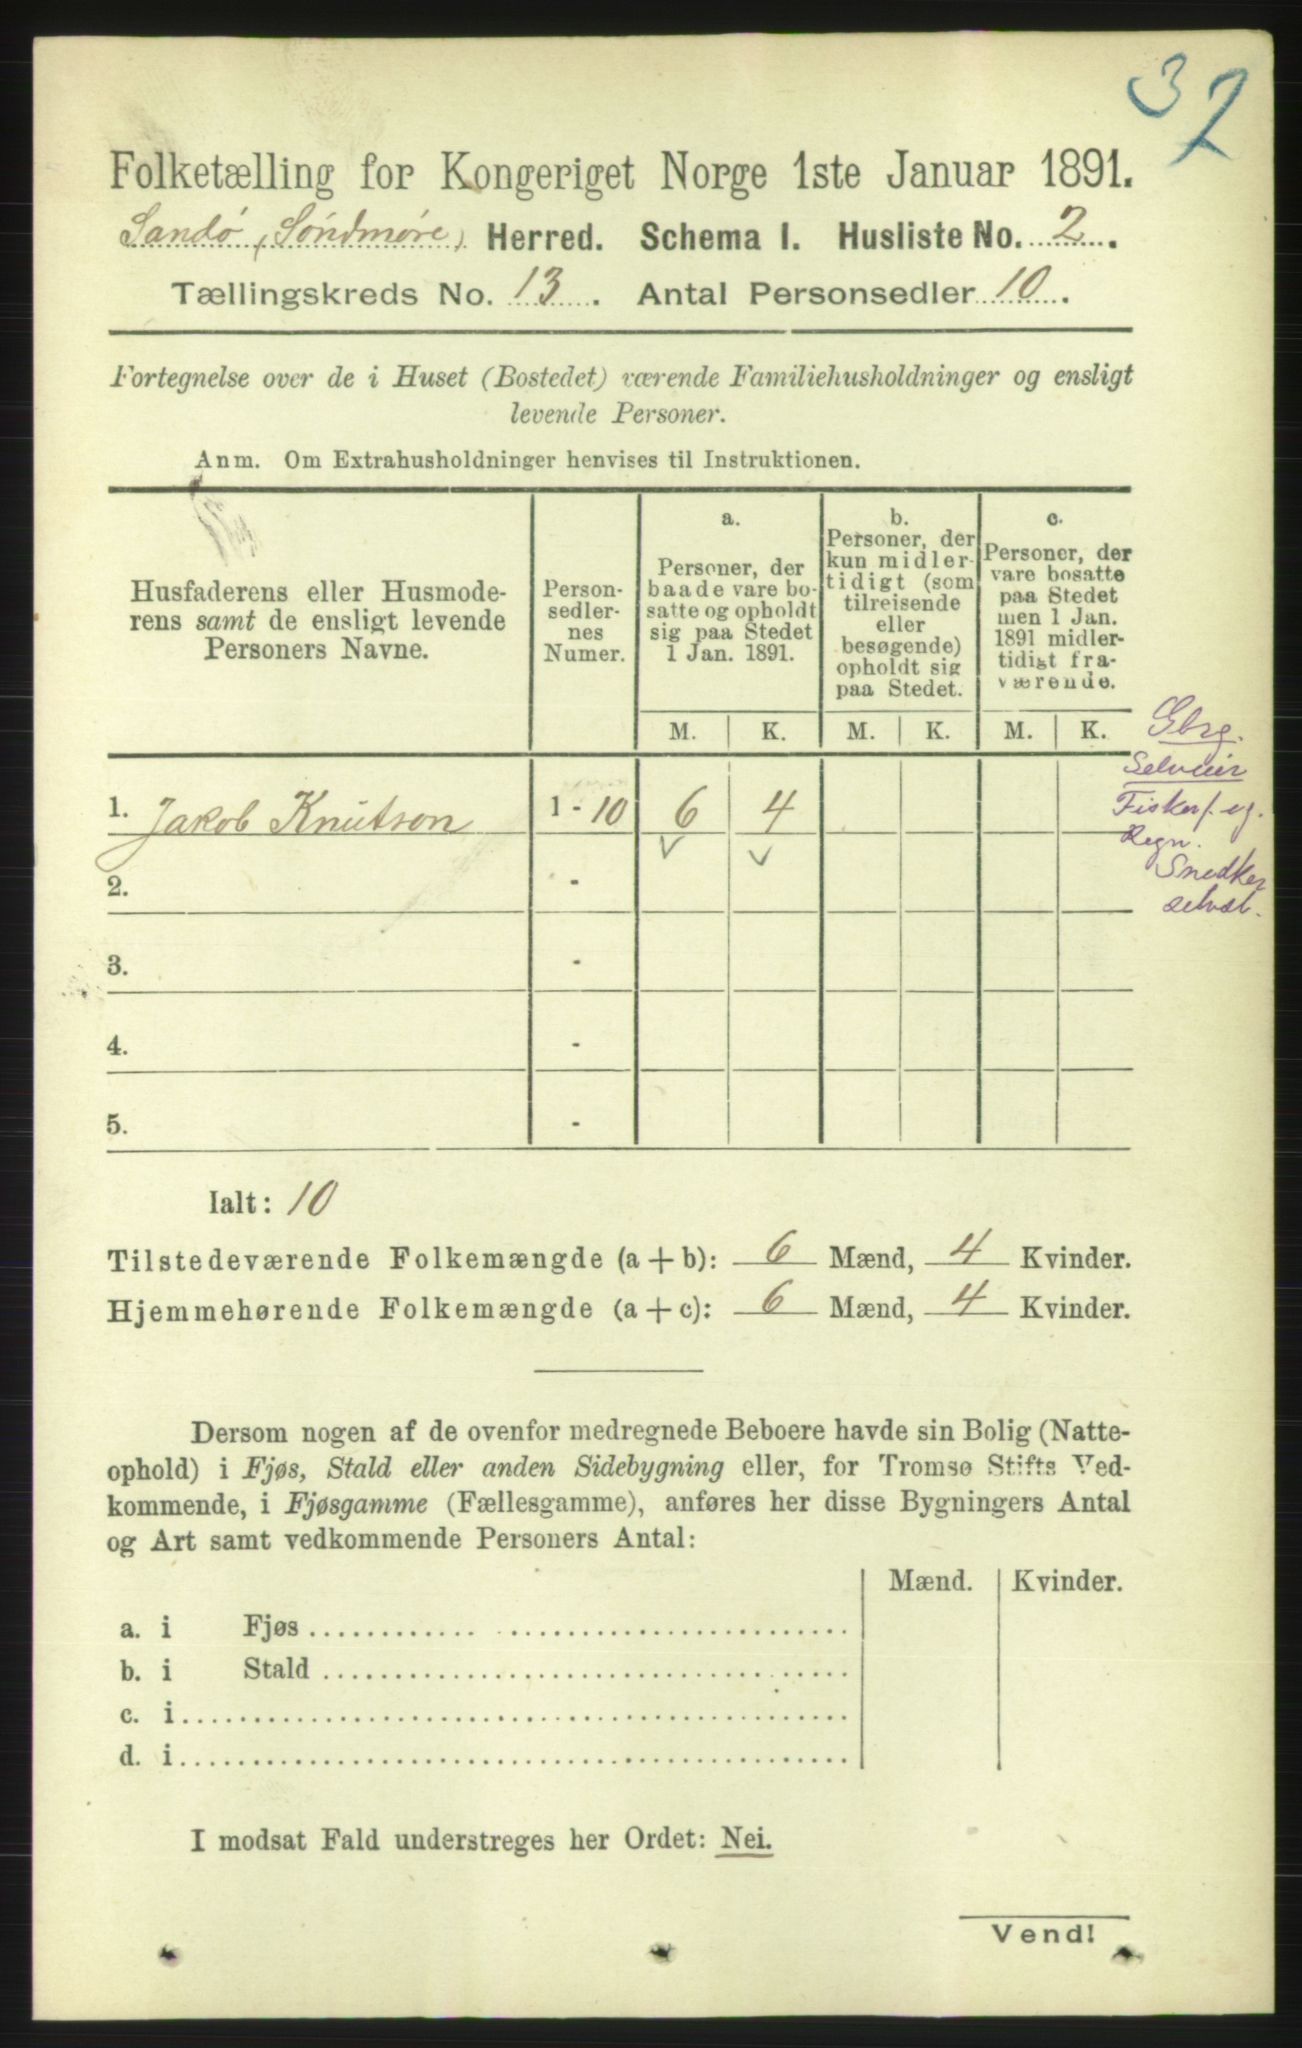 32
Folketælling for Kongeriget Norge 1ste Januar 1891.
Sandø (Søndmøre) Herred. Schema I. Husliste No. 2.
Tællingskreds No. 13. Antal Personsedler 10.
Fortegnelse over de i Huset (Bostedet) værende Familiehusholdninger og ensligt
levende Personer.
Anm. Om Extrahusholdninger henvises til Instruktionen.
Husfaderens eller Husmode-
rens samt de ensligt levende
Personers Navne.
Person-
sedler-
nes
Numer.
a.
Personer, der
baade vare bo-
satte og opholdt
sig paa Stedet
1 Jan. 1891.
b.
Personer, der
kun midler-
tidigt (som
tilreisende
eller
besøgende)
opholdt sig
paa Stedet.
c.
Personer, der
vare bosatte
paa Stedet
men 1 Jan.
1891 midler-
tidigt fra-
værende.
M. K. M. K. M. K.
Gbrg.
Selveier
Fisker
Regn.
Snedker
selvst.
1. Jakob Knutson 1 - 10 6 4
2. -
3. -
4. -
5. -
Ialt: 10
Tilstedeværende Folkemængde (a + b): 6 Mænd, 4 Kvinder.
Hjemmehørende Folkemængde (a + c): 6 Mænd, 4 Kvinder.
Dersom nogen af de ovenfor medregnede Beboere havde sin Bolig (Natte-
ophold) i Fjøs, Stald eller anden Sidebygning eller, for Tromsø Stifts Ved-
kommende, i Fjøsgamme (Fællesgamme), anføres her disse Bygningers Antal
og Art samt vedkommende Personers Antal:
Mænd. Kvinder.
a. i Fjøs
b. i Stald
c. i
d. i
I modsat Fald understreges her Ordet: Nei.
Vend!